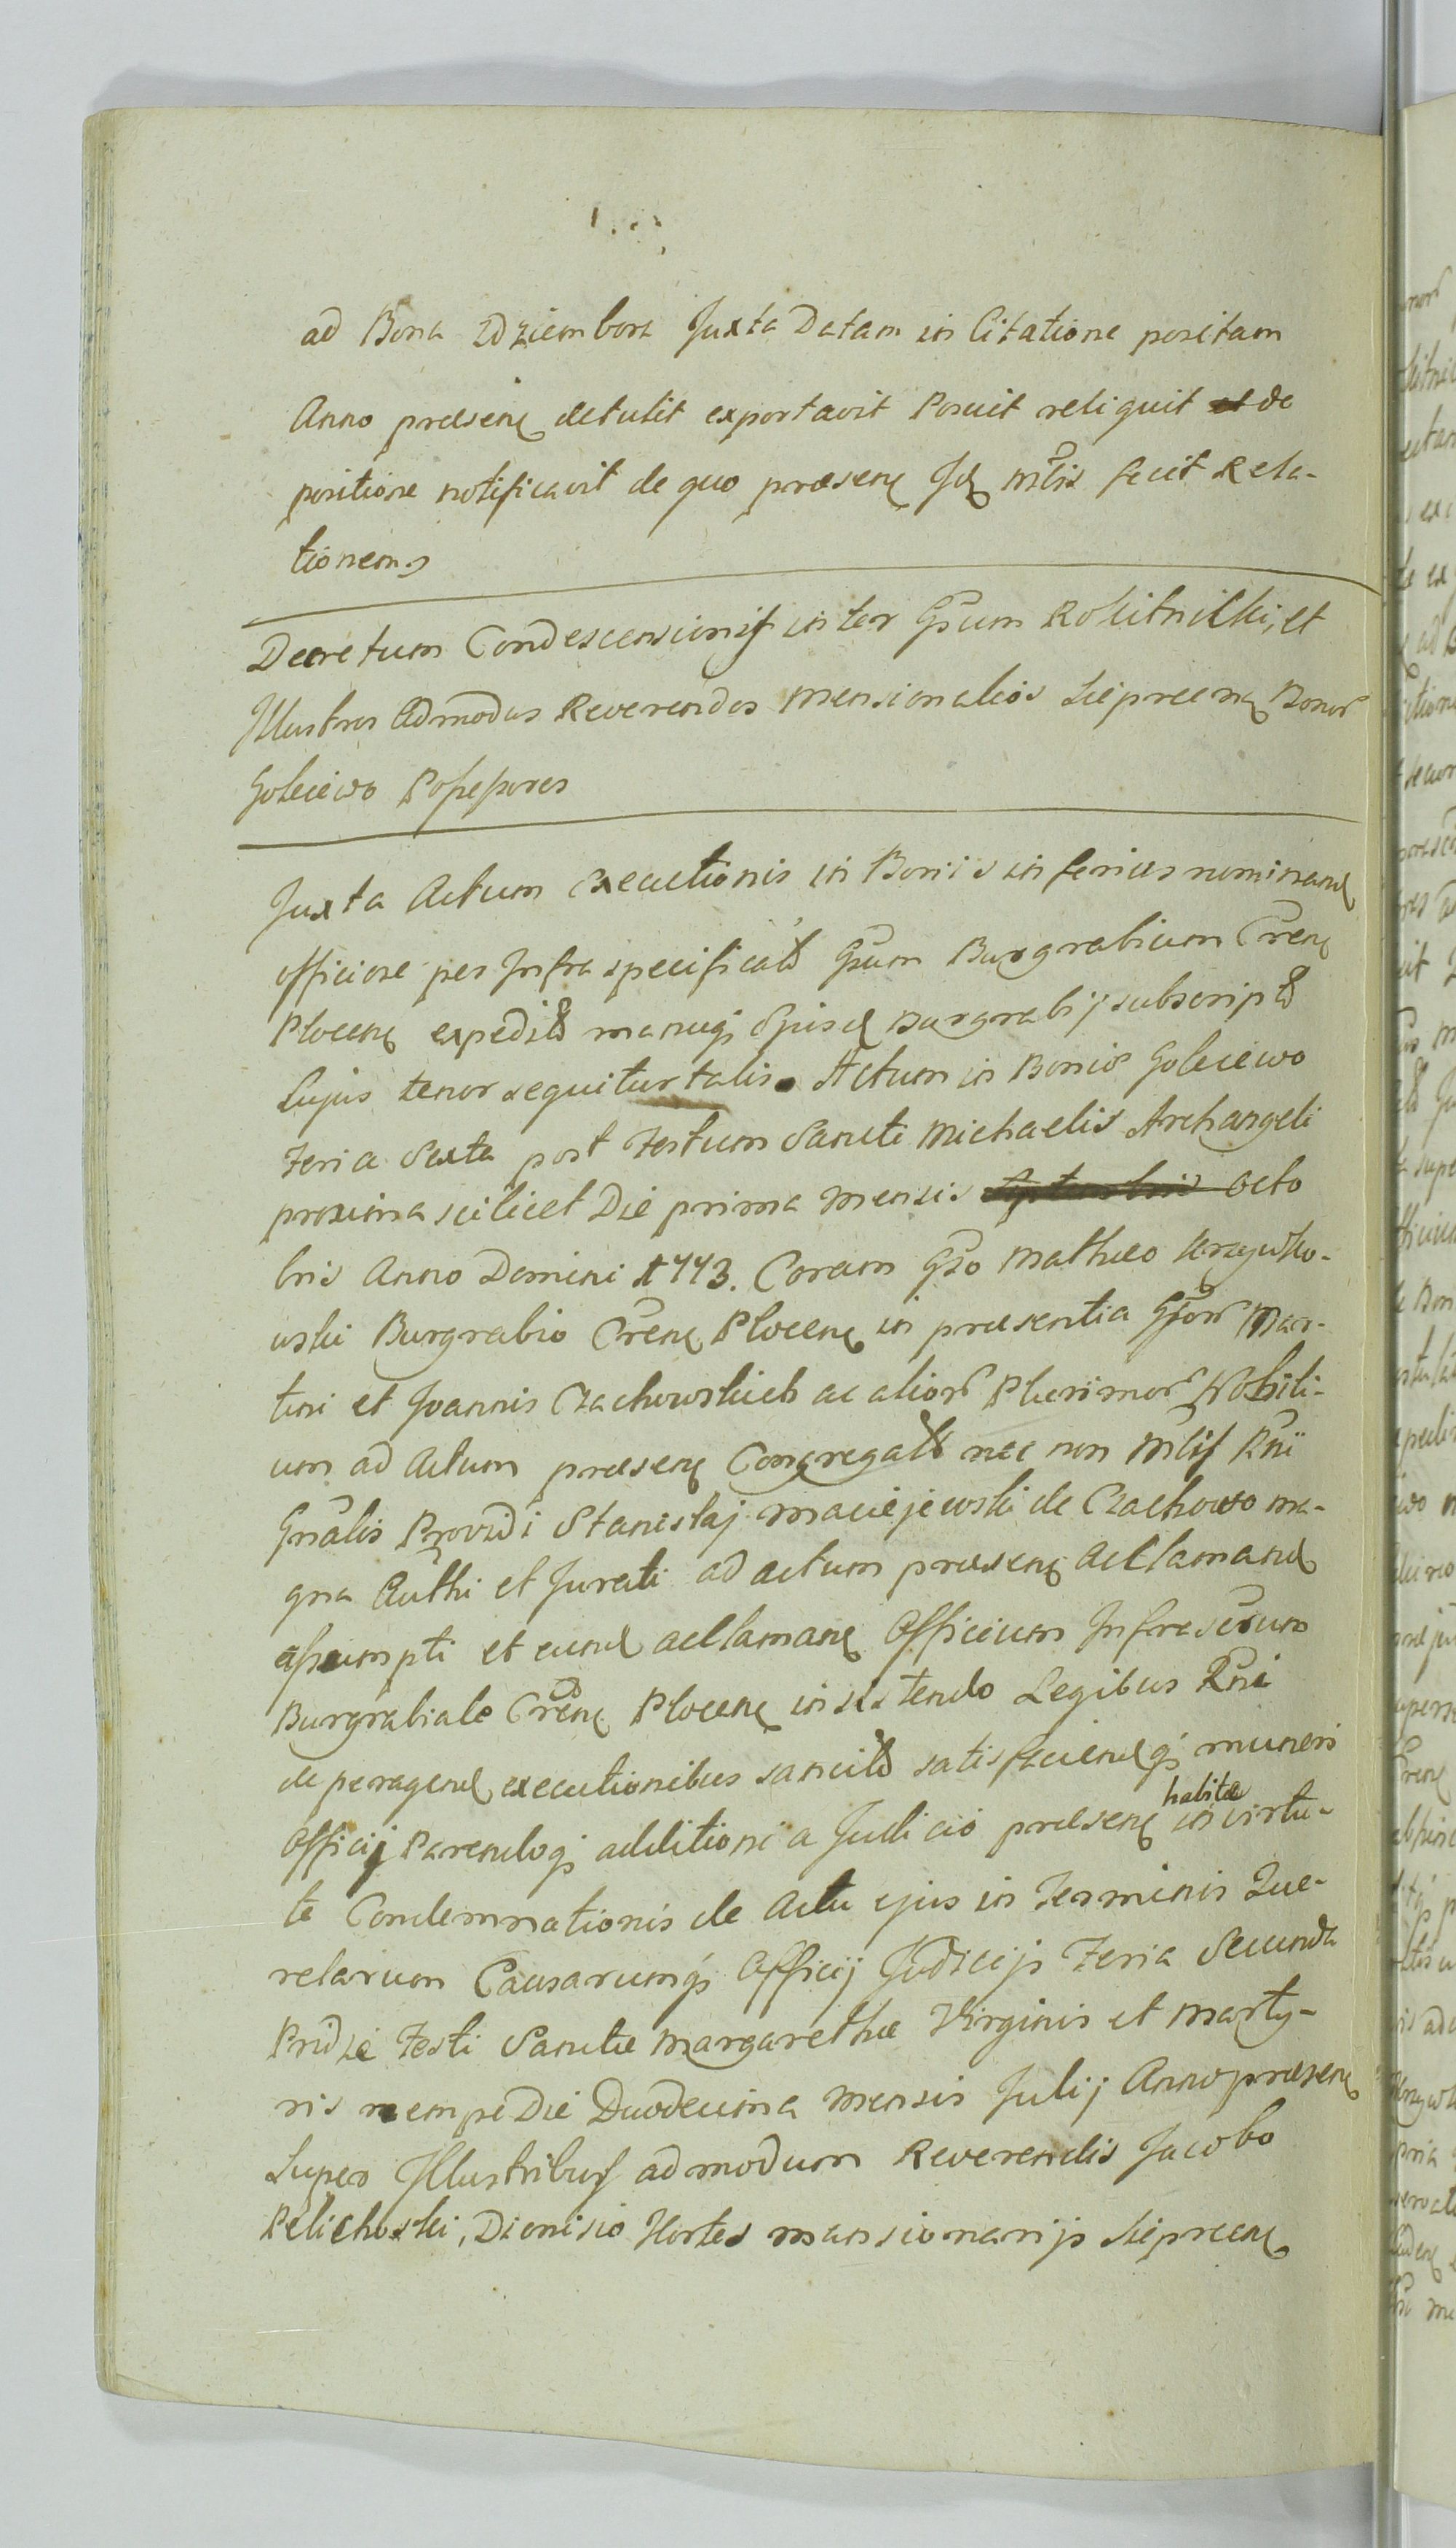 ad Bona Zdziembora Juxta Datam in Citatione positam
Anno præsenti detulit exportavit Posuit reliquit de
positione notificavit de quo præsens Id mlis fecit Rela-
tionem
Decretum Condescensionis inter Gsum Rokitnicki, et
Illustres Admodus Reverendos Mensionalios Siepreen Bonor
Golciewo Possessores
Juxta Actum Executionis in Bonis inferius nominand
officiose per Infra specificatd Gsum Burgrabium Cren
Plocen expeditd manuq Ejusd Burgrabij subscriptd
Cujus tenor sequitur talis. Actum in Bonis Golciewo
Feria Sexta post Festum Sancti Michaelis Archangeli
proxima scilicet Die prima Mensis Octo
bris Anno Domini 1773. Coram Gso Matheo Krzywko-
wski Burgrabio Cren Plocen in præsentia Gsor Mar-
tini et Joannis Czachowskich ac alior Plurimor Nobili-
um ad Actum præsen Congregatd nec non Mlis Rni
Gnalis Providi Stanislaj Maciejewski de Czachowo ma-
gna Authi et Jurati ad actum præsen acclamand
assumpti et eund acclamand Officium Infrascrum
Burgrabiale Cren Plocen insistendo Legibus Rni
de peragend executionibus sancitd satisfaciendq muneri
Officij Parendoq additioni a Judicio præsen habitæ in virtu-
te Condemnationis de Actu ejus in Terminis Que-
relarum Causarumq Officij Judicijs Feria Secunda
Pridie Festi Sanctæ Margarethæ Virginis et Marty-
ris nempe Die Duodecima Mensis Julij Anno præsen
Super Illustribus admodum Reverendis Jacobo
Pelichoski, Dionisio Hortes mansionarijs Siepreen